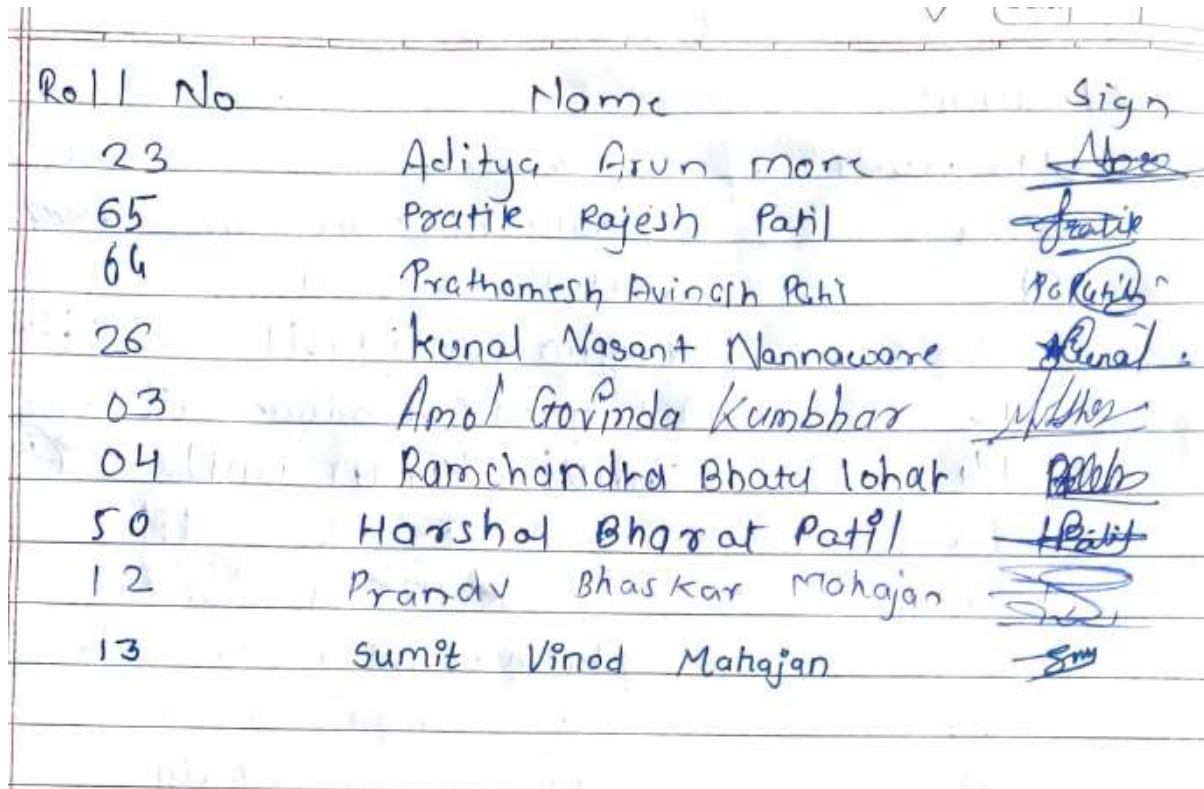 Roll No Name Sign
23 Aditya Arun more More
65 Pratik Rajesh Patil Pratik
64 Prathamesh Avinash Patil
26 Kunal Vasant Nannaware Kunal
03 Amol Govinda Kumbhar
04 Ramchandra Bhatu lohar
50 Harshal Bharat Patil HPatil
12 Pranav Bhaskar Mahajan
13 Sumit Vinod Mahajan